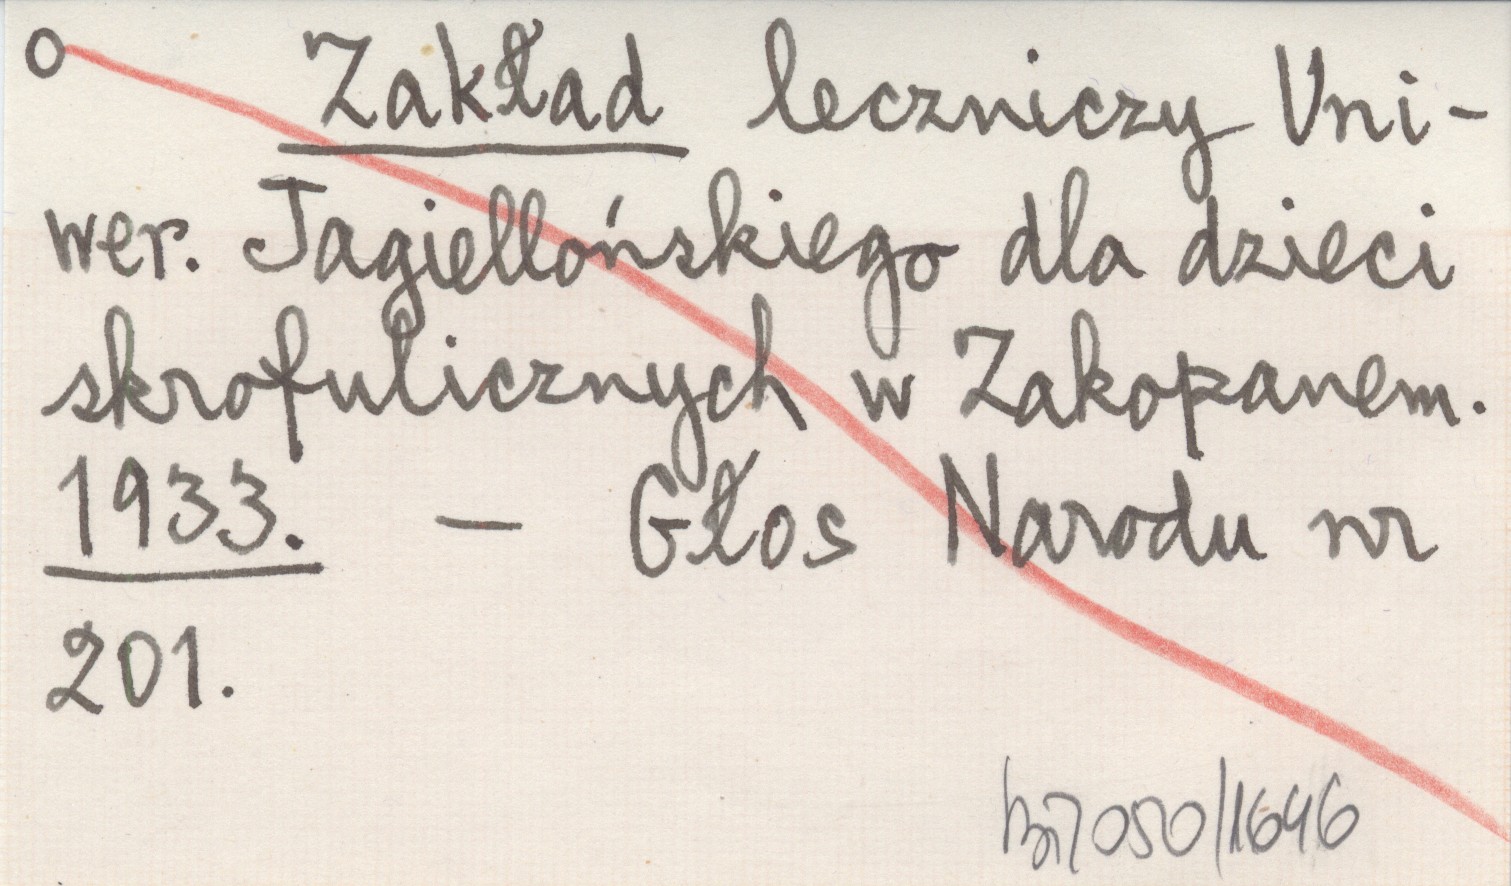 o Zakład leczniczy Uni-
wer. Jagiellońskiego dla dzieci
skrofulicznych w Zakopanem.
1933. — Głos Narodu nr
201.
050/1646